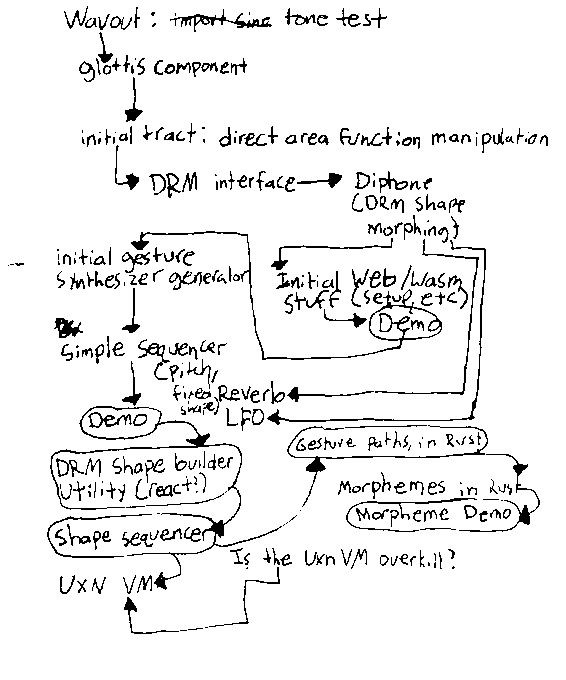 Wavout: import sine tone test
glottis component
initial tract: direct area function manipulation
DRM interface
Diphone
(DRM shape
morphing)
initial gesture
synthesizer generator
Initial Web/Wasm
stuff (setup, etc)
Demo
Simple sequencer
(pitch,
fixed
shape)
Reverb
LFO
Demo
Gesture paths, in Rust
DRM shape builder
utility (react?)
Morphemes in Rust
Morpheme Demo
Shape sequencer
Is the Uxn VM overkill?
UXN VM